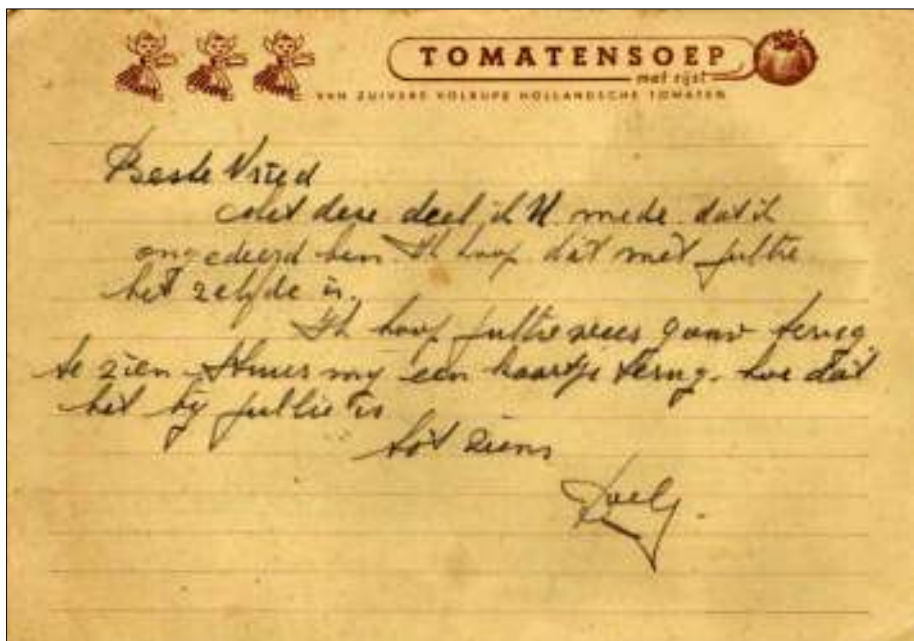 TOMATENSOEP
met rijst
VAN ZUIVERE VOLRIJPE HOLLANDSCHE TOMATEN
Beste Vried
Met deze deel ik U mede dat ik
ongedeerd ben Ik hoop dat met jullie
het zelfde is.
Ik hoop jullie weer gauw terug
te zien Stuur my een kaartje terug. hoe dat
het by jullie is
tot ziens